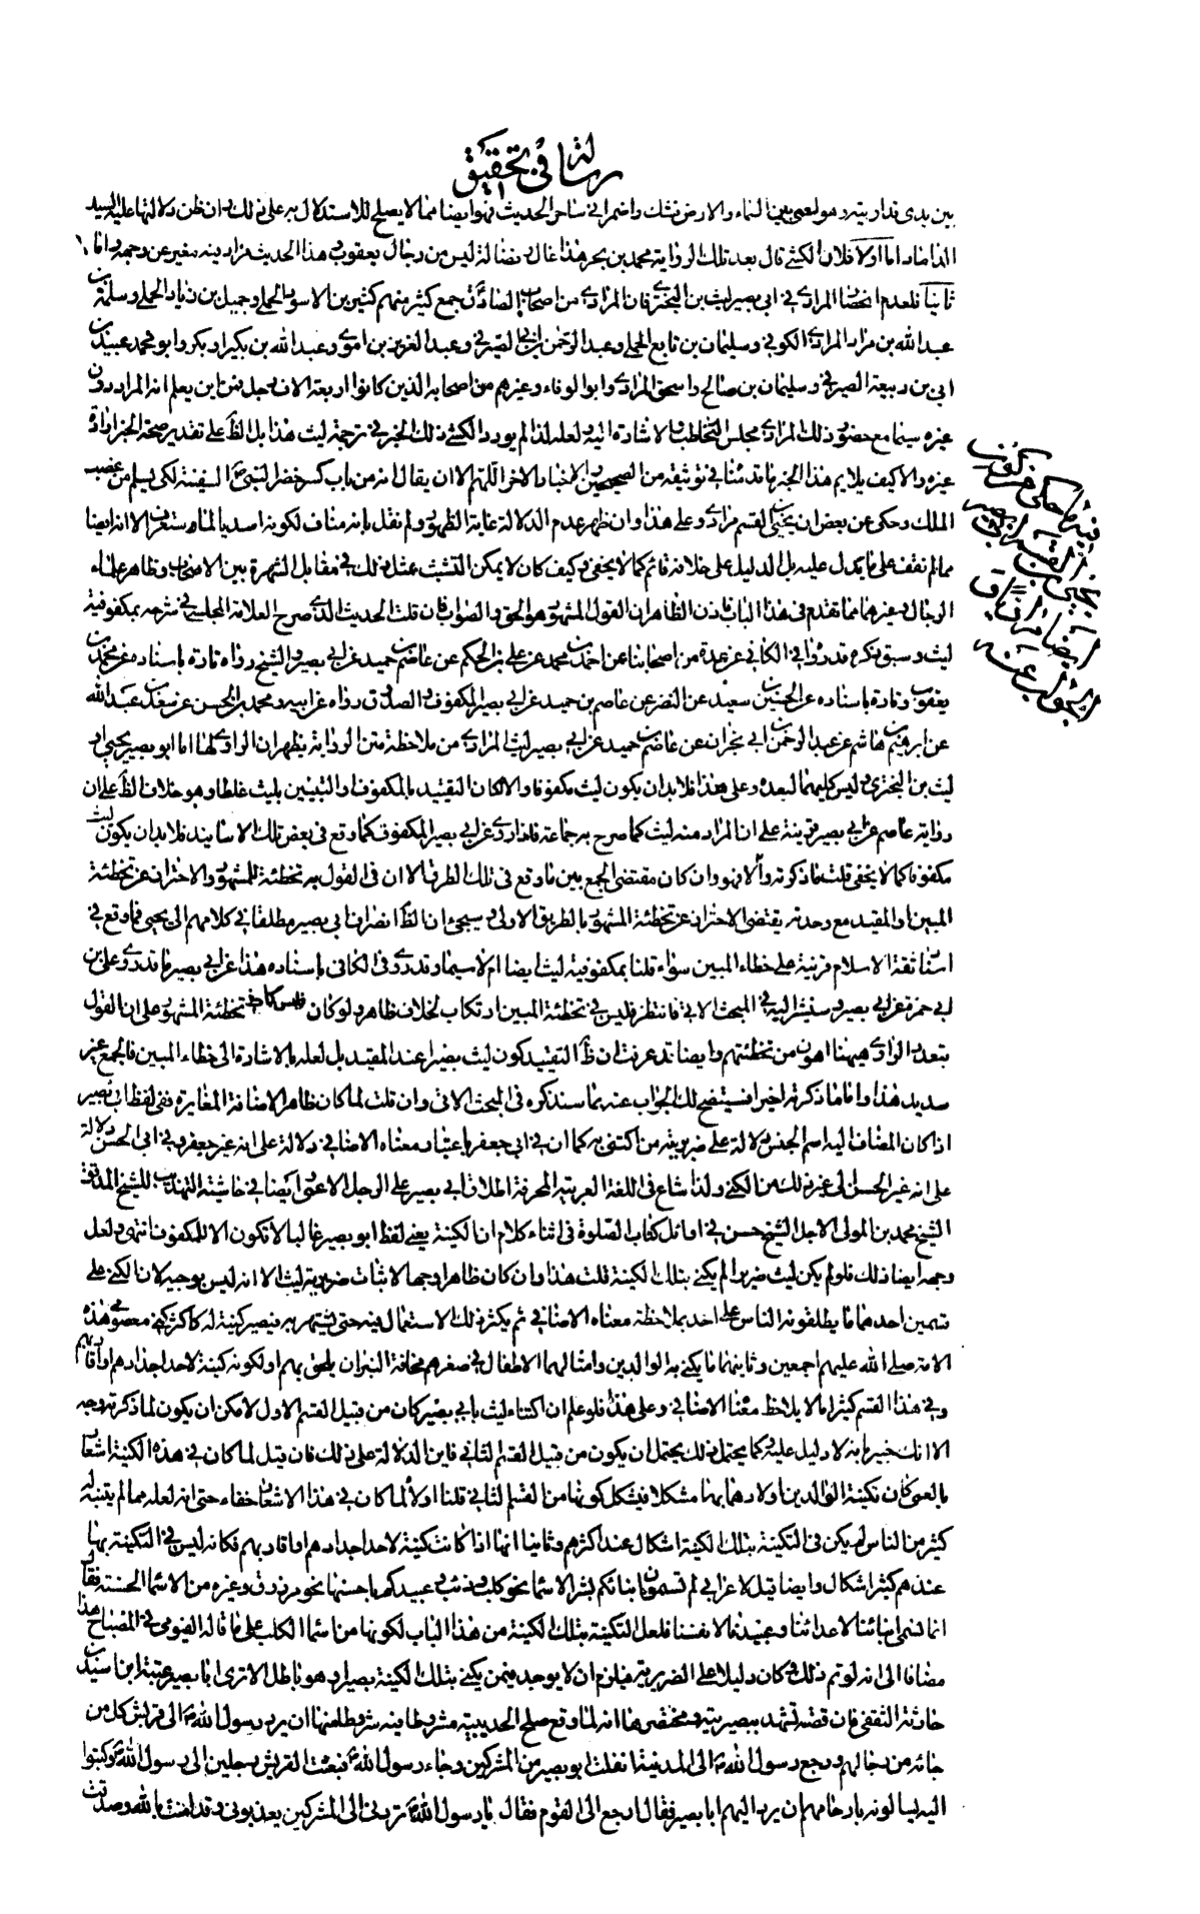 رسالة في تحقيق
بين يدي قدار بيته وهو لعبي بين السماء والارض فشك واضمر في ساحر الحديث فهو ايضا مما لا يصلح للاستدلال به على ذلك وان ظن دلالتها عليه السيد
الداماد اما اولا فلان الكشي قال بعد تلك الرواية محمد بن بحر هذا غال وفضالة ليس من رجال يعقوب وهذا الحديث مزاد فيه مغير عن وجهه واما
ثانيا فلعدم انحصار المرادي في ابي بصير ليث بن البختري فان المرادي من اصحاب الصادق جمع كثير منهم كثير بن الاسود الجملي وجميل بن زياد الجملي وسلمة بن
عبد الله بن مراد المرادي الكوفي وسليمان بن تابع الجملي وعبد الرحمن الصيرفي وعبد العزيز بن اموي وعبد الله بن بكير ابو بكر وابو محمد عبيد بن
ابي بن ربيعة الصيرفي وسليمان بن صالح واسحق المرادي وابو الوفاء وغيرهم من اصحابه الذين كانوا اربعة الاف رجل فمن اين يعلم انه المراد دون
غيره سيما مع حضور ذلك المرادي مجلس التخاطب والاشارة اليه ولعله لذا لم يورد الكشي ذلك الخبر في ترجمة ليث هذا بل الظ على تقدير صحة الخبر ارادة
غيره والا كيف يلايم هذا الخبر ما قدمنا في توثيقه من الصحيحين والاخبار الاخر اللهم الا ان يقال انه من باب كسر خضر النبي ع السفينة لكي يسلم من غصب
الملك وحكى عن بعض ان يحيى بن القسم مرادي وعلى هذا وان ظهر عدم الدلالة غاية الظهور ولم نقل بانه مناف لكونه اسديا لما ستعرف الا انه ايضا
مما لم نقف على ما يدل عليه بل الدليل على خلافه قائم كما لا يخفى وكيف كان لا يمكن التشبث بمثل ذلك في مقابل الشهرة بين الاصحاب وظاهر علماء
الرجال وغيرهما مما تقدم في هذا الباب فاذن الظاهر ان القول المشهور هو الحق والصواب فان قلت الحديث الذي صرح العلامة المجلسي في شرحه بمكفوفية
ليث وسبق ذكره قد رواه في الكافي عن عدة من اصحابنا عن احمد بن محمد عن علي بن الحكم عن عاصم بن حميد عن ابي بصير والشيخ رواه تارة باسناده عن محمد بن
يعقوب وتارة باسناده عن الحسين بن سعيد عن النضر عن عاصم بن حميد عن ابي بصير المكفوف والصدوق رواه عن ابيه ومحمد بن الحسن عن سعد بن عبد الله
عن ابرهيم بن هاشم عن عبد الرحمن بن ابي نجران عن عاصم بن حميد عن ابي بصير ليث المرادي من ملاحظة متن الرواية يظهر ان الراوي لها اما ابو بصير يحيى او
ليث بن البختري وليس كليهما لبعده وعلى هذا فلا بد ان يكون ليث مكفوفا والا لكان التقييد بالمكفوف والتبيين بليث غلطا وهو خلاف الظ على ان
رواية عاصم عن ابي بصير قرينة على ان المراد منه ليث كما صرح به جماعة فاذا روى عن ابي بصير المكفوف كما وقع في بعض تلك الاسانيد فلا بد ان يكون ليث
مكفوفا كما لا يخفى قلت ما ذكرته اولا فهو وان كان مقتضى الجمع بين ما وقع في تلك الطرق الا ان في القول به تخطئة للمشهور والاحتراز عن تخطئة
المبين او المقيد مع وحدته يقتضي الاحتراز عن تخطئة المشهور بالطريق الاولى وسيجئ ان الظ انصراف ابي بصير مطلقا في كلامهم الى يحيى فما وقع في
اسناد ثقة الاسلام قرينة على خطاء المبين سواء قلنا بمكفوفية ليث ايضا ام لا سيما وقد روى في الكافي باسناده هذا عن ابي بصير ما قد روى علي بن
ابي حمزة عن ابي بصير وسنشير اليه في المبحث الاتي فانتظر فليس في تخطئة المبين ارتكاب لخلاف ظاهر ولو كان فليس كما في تخطئة المشهور على ان القول
بتعدد الراوي هيهنا اهون من تخطئتهم وايضا قد عرفت ان ظ التقييد كون ليث بصيرا عند المقيد بل لعله بالاشارة الى خطاء المبين فالجمع غير
سديد هذا واما ما ذكرته اخيرا فسيتضح لك الجواب عنه بما سنذكره في المبحث الاتي وان قلت لما كان ظاهر الاضافة المغايرة ففي لفظ ابي بصير
اذا كان المضاف اليه اسم الجنس دلالة على ضريرية من اكتنى به كما ان في ابي جعفر باعتبار معناه الاضافي دلالة على انه غير جعفر وفي ابي الحسن دلالة
على انه غير الحسن الى غير ذلك من الكنى ولذا شاع في اللغة العربية المحرفة اطلاق ابي بصير على الرجل الاعمى وايضا في حاشية التهذيب للشيخ المدقق
الشيخ محمد بن المولى الاجل الشيخ حسن في اوائل كتاب الصلوة في اثناء كلام ان الكنية يعني لفظ ابو بصير غالبا لا تكون الا للمكفوف انتهى ولعل
وجهه ايضا ذلك فلو لم يكن ليث ضريرا لم يكنى بتلك الكنية قلت هذا وان كان ظاهرا وجها لاثبات ضريرية ليث الا انه ليس بوجيه لان الكنى على
قسمين احدهما ما يطلقونه الناس على احد بملاحظة معناه الاضافي ثم يكثر ذلك الاستعمال فيه حتى يشتهر به فيصير كنية له كاكثر كنى معصومي هذه
الامة صلى الله عليهم اجمعين وثانيهما ما يكنى به الوالدين وامثالهما الاطفال في صغرهم مخافة النبز ان يلحق بهم او لكونه كنية لاحد اجدادهم او اقاربهم
وفي هذا القسم كثيرا ما لا يلاحظ معنا الاضافي وعلى هذا فلو علم ان اكتناء ليث بابي بصير كان من قبيل القسم الاول لامكن ان يكون لما ذكرته وجه
الا انك خبير بانه لا دليل عليه وكما يحتمل ذلك يحتمل ان يكون من قبيل القسم الثاني فاين الدلالة على ذلك فان قيل لما كان في هذه الكنية اشعار
بالعمى كان تكنية الوالدين اولادهما بها مشكلا فيشكل كونها من القسم الثاني قلنا اولا لما كان في هذا الاشعار خفاء حتى انه لعله مما لم يتنبه له
كثير من الناس لم يكن في التكنية بتلك الكنية اشكال عند اكثرهم وثانيا انها اذا كانت كنية لاحد اجدادهم او اقاربهم فكانه ليس في التكنية بها
عندهم كثير اشكال وايضا قيل لاعرابي لم تسمون ابنائكم بشر الاسماء نحو كلب وذئب وعبيدكم باحسنها نحو مرزوق وغيره من الاسماء الحسنة فقال
انما نسمى ابنائنا لاعدائنا وعبيدنا لانفسنا فلعل التكنية بتلك الكنية من هذا الباب لكونها من اسماء الكلب على ما قاله الفيومي في المصباح هذا
مضافا الى انه لو تم ذلك وكان دليلا على الضريرية فيلزم ان لا يوجد فيمن يكنى بتلك الكنية بصيرا وهو باطل الا ترى ابا بصير عتبة ابن اسيد بن
حارثة الثقفي فان قصته تشهد ببصيريته ومختصرها انه لما وقع صلح الحديبية مشروطا فيه شروط منها ان يرد رسول الله ص الى قريش كل من
جائه من رجالهم ورجع رسول الله ص الى المدينة انفلت ابو بصير من المشركين وجاء رسول الله ص فبعث القريش رجلين الى رسول الله ص وكتبوا
اليه يسالونه بارحامهم ان يرد اليهم ابا بصير فقال ارجع الى القوم فقال يا رسول الله ص تردني الى المشركين يعذبوني وقد امنت بالله وصدقت